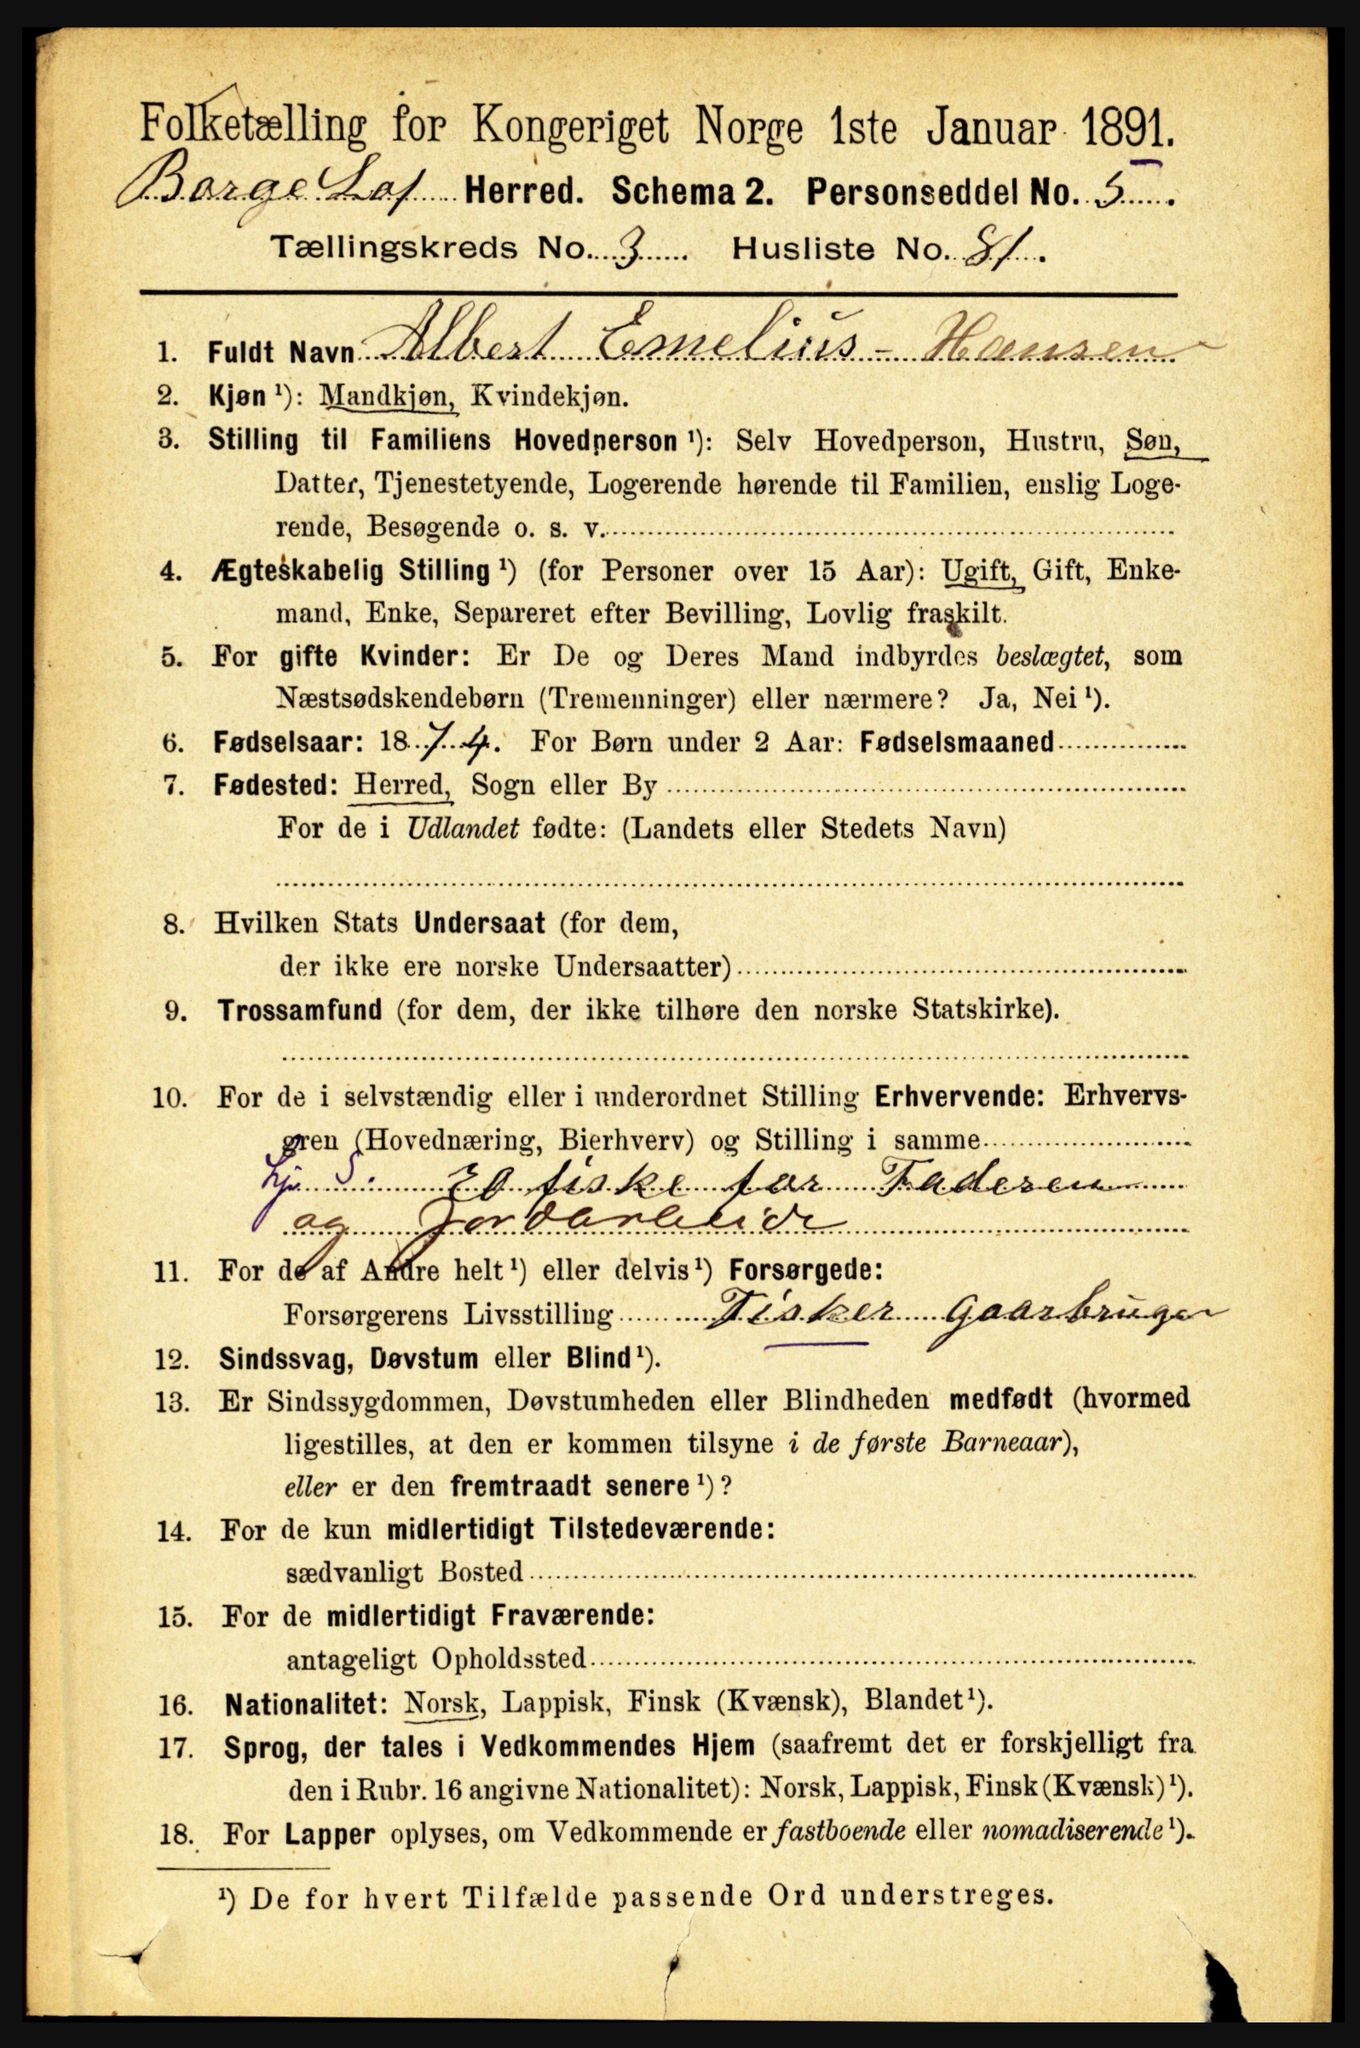 Folketælling for Kongeriget Norge 1ste Januar 1891.
Borge Lof Herred. Schema 2. Personseddel No. 5.
Tællingskreds No. 3. Husliste No. 81.
1. Fuldt Navn Albert Emelius Hansen
2. Kjøn ¹): Mandkjøn, Kvindekjøn.
3. Stilling til Familiens Hovedperson ¹): Selv Hovedperson, Hustru, Søn,
Datter, Tjenestetyende, Logerende hørende til Familien, enslig Loge-
rende, Besøgende o. s. v.
4. Ægteskabelig Stilling ¹) (for Personer over 15 Aar): Ugift, Gift, Enke-
mand, Enke, Separeret efter Bevilling, Lovlig fraskilt.
5. For gifte Kvinder: Er De og Deres Mand indbyrdes beslægtet, som
Næstsødskendebørn (Tremenninger) eller nærmere? Ja, Nei ¹).
6. Fødselsaar: 1874. For Børn under 2 Aar: Fødselsmaaned
7. Fødested: Herred, Sogn eller By
For de i Udlandet fødte: (Landets eller Stedets Navn)
8. Hvilken Stats Undersaat (for dem,
der ikke ere norske Undersaatter)
9. Trossamfund (for dem, der ikke tilhøre den norske Statskirke).
10. For de i selvstændig eller i underordnet Stilling Erhvervende: Erhvervs-
gren (Hovednæring, Bierhverv) og Stilling i samme
fiske for Faderen
og Jordarbeide
11. For de af Andre helt ¹) eller delvis ¹) Forsørgede:
Forsørgerens Livsstilling Fisker Gaarbruger
12. Sindssvag, Døvstum eller Blind ¹).
13. Er Sindssygdommen, Døvstumheden eller Blindheden medfødt (hvormed
ligestilles, at den er kommen tilsyne i de første Barneaar),
eller er den fremtraadt senere ¹)?
14. For de kun midlertidigt Tilstedeværende:
sædvanligt Bosted
15. For de midlertidigt Fraværende:
antageligt Opholdssted
16. Nationalitet: Norsk, Lappisk, Finsk (Kvænsk), Blandet ¹).
17. Sprog, der tales i Vedkommendes Hjem (saafremt det er forskjelligt fra
den i Rubr. 16 angivne Nationalitet): Norsk, Lappisk, Finsk (Kvænsk) ¹).
18. For Lapper oplyses, om Vedkommende er fastboende eller nomadiserende ¹).
¹) De for hvert Tilfælde passende Ord understreges.